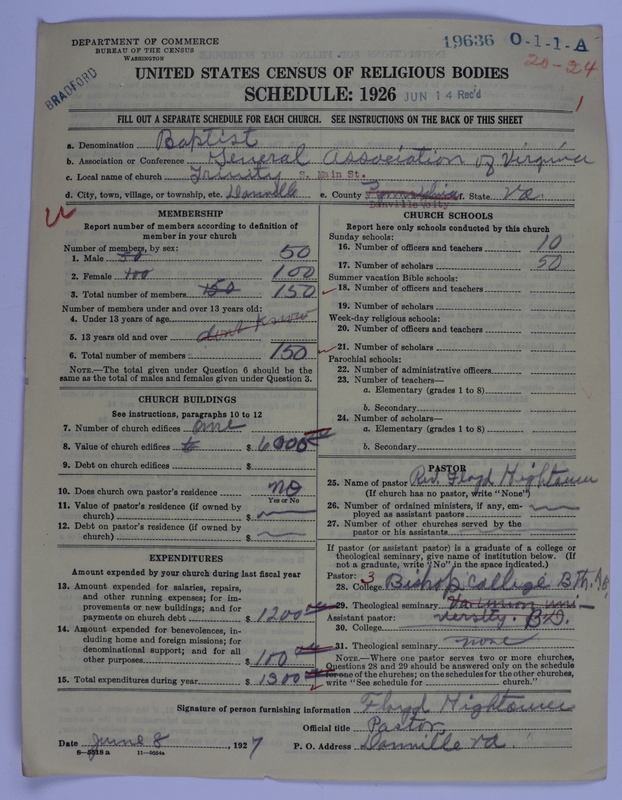 DEPARTMENT OF COMMERCE
BUREAU OF THE CENSUS
WASHINGTON
19636 O-1-1-A
20-24
BRADFORD
UNITED STATES CENSUS OF RELIGIOUS BODIES
SCHEDULE: 1926 JUN 14 Rec'd
1
FILL OUT A SEPARATE SCHEDULE FOR EACH CHURCH. SEE INSTRUCTIONS ON THE BACK OF THIS SHEET
a. Denomination Baptist
b. Association or Conference General Association of Virginia
c. Local name of church Trinity S. Main St.
d. City, town, village, or township, etc. Danville e. County Danville City f. State Va
MEMBERSHIP
Report number of members according to definition of member in your church
Number of members, by sex:
1. Male 50 50
2. Female 100 100
3. Total number of members 150 150
Number of members under and over 13 years old:
4. Under 13 years of age
5. 13 years old and over dont know
6. Total number of members 150
NOTE.—The total given under Question 6 should be the same as the total of males and females given under Question 3.
CHURCH BUILDINGS
See instructions, paragraphs 10 to 12
7. Number of church edifices one
8. Value of church edifices $ 6000
9. Debt on church edifices $
10. Does church own pastor's residence no
Yes or No
11. Value of pastor's residence (if owned by church) $
12. Debt on pastor's residence (if owned by church) $
EXPENDITURES
Amount expended by your church during last fiscal year
13. Amount expended for salaries, repairs, and other running expenses; for improvements or new buildings; and for payments on church debt $ 1200
14. Amount expended for benevolences, including home and foreign missions; for denominational support; and for all other purposes $ 100
15. Total expenditures during year $ 1300
CHURCH SCHOOLS
Report here only schools conducted by this church
Sunday schools:
16. Number of officers and teachers 10
17. Number of scholars 50
Summer vacation Bible schools:
18. Number of officers and teachers
19. Number of scholars
Week-day religious schools:
20. Number of officers and teachers
21. Number of scholars
Parochial schools:
22. Number of administrative officers
23. Number of teachers—
a. Elementary (grades 1 to 8)
b. Secondary
24. Number of scholars—
a. Elementary (grades 1 to 8)
b. Secondary
PASTOR
25. Name of pastor Rev. Floyd Hightower
(If church has no pastor, write "None")
26. Number of ordained ministers, if any, employed as assistant pastors
27. Number of other churches served by the pastor or his assistants
If pastor (or assistant pastor) is a graduate of a college or theological seminary, give name of institution below. (If not a graduate, write "No" in the space indicated.)
Pastor: 3
28. College Bishop College B.Th.
29. Theological seminary Va Union Uni-
Assistant pastor: versity. B.D.
30. College
31. Theological seminary none
NOTE.—Where one pastor serves two or more churches, Questions 28 and 29 should be answered only on the schedule for one of the churches; on the schedules for the other churches, write "See schedule for church."
Signature of person furnishing information Floyd Hightower
Official title Pastor
Date June 8, 1927 P. O. Address Danville Va.
8—5518 a 11—9054a